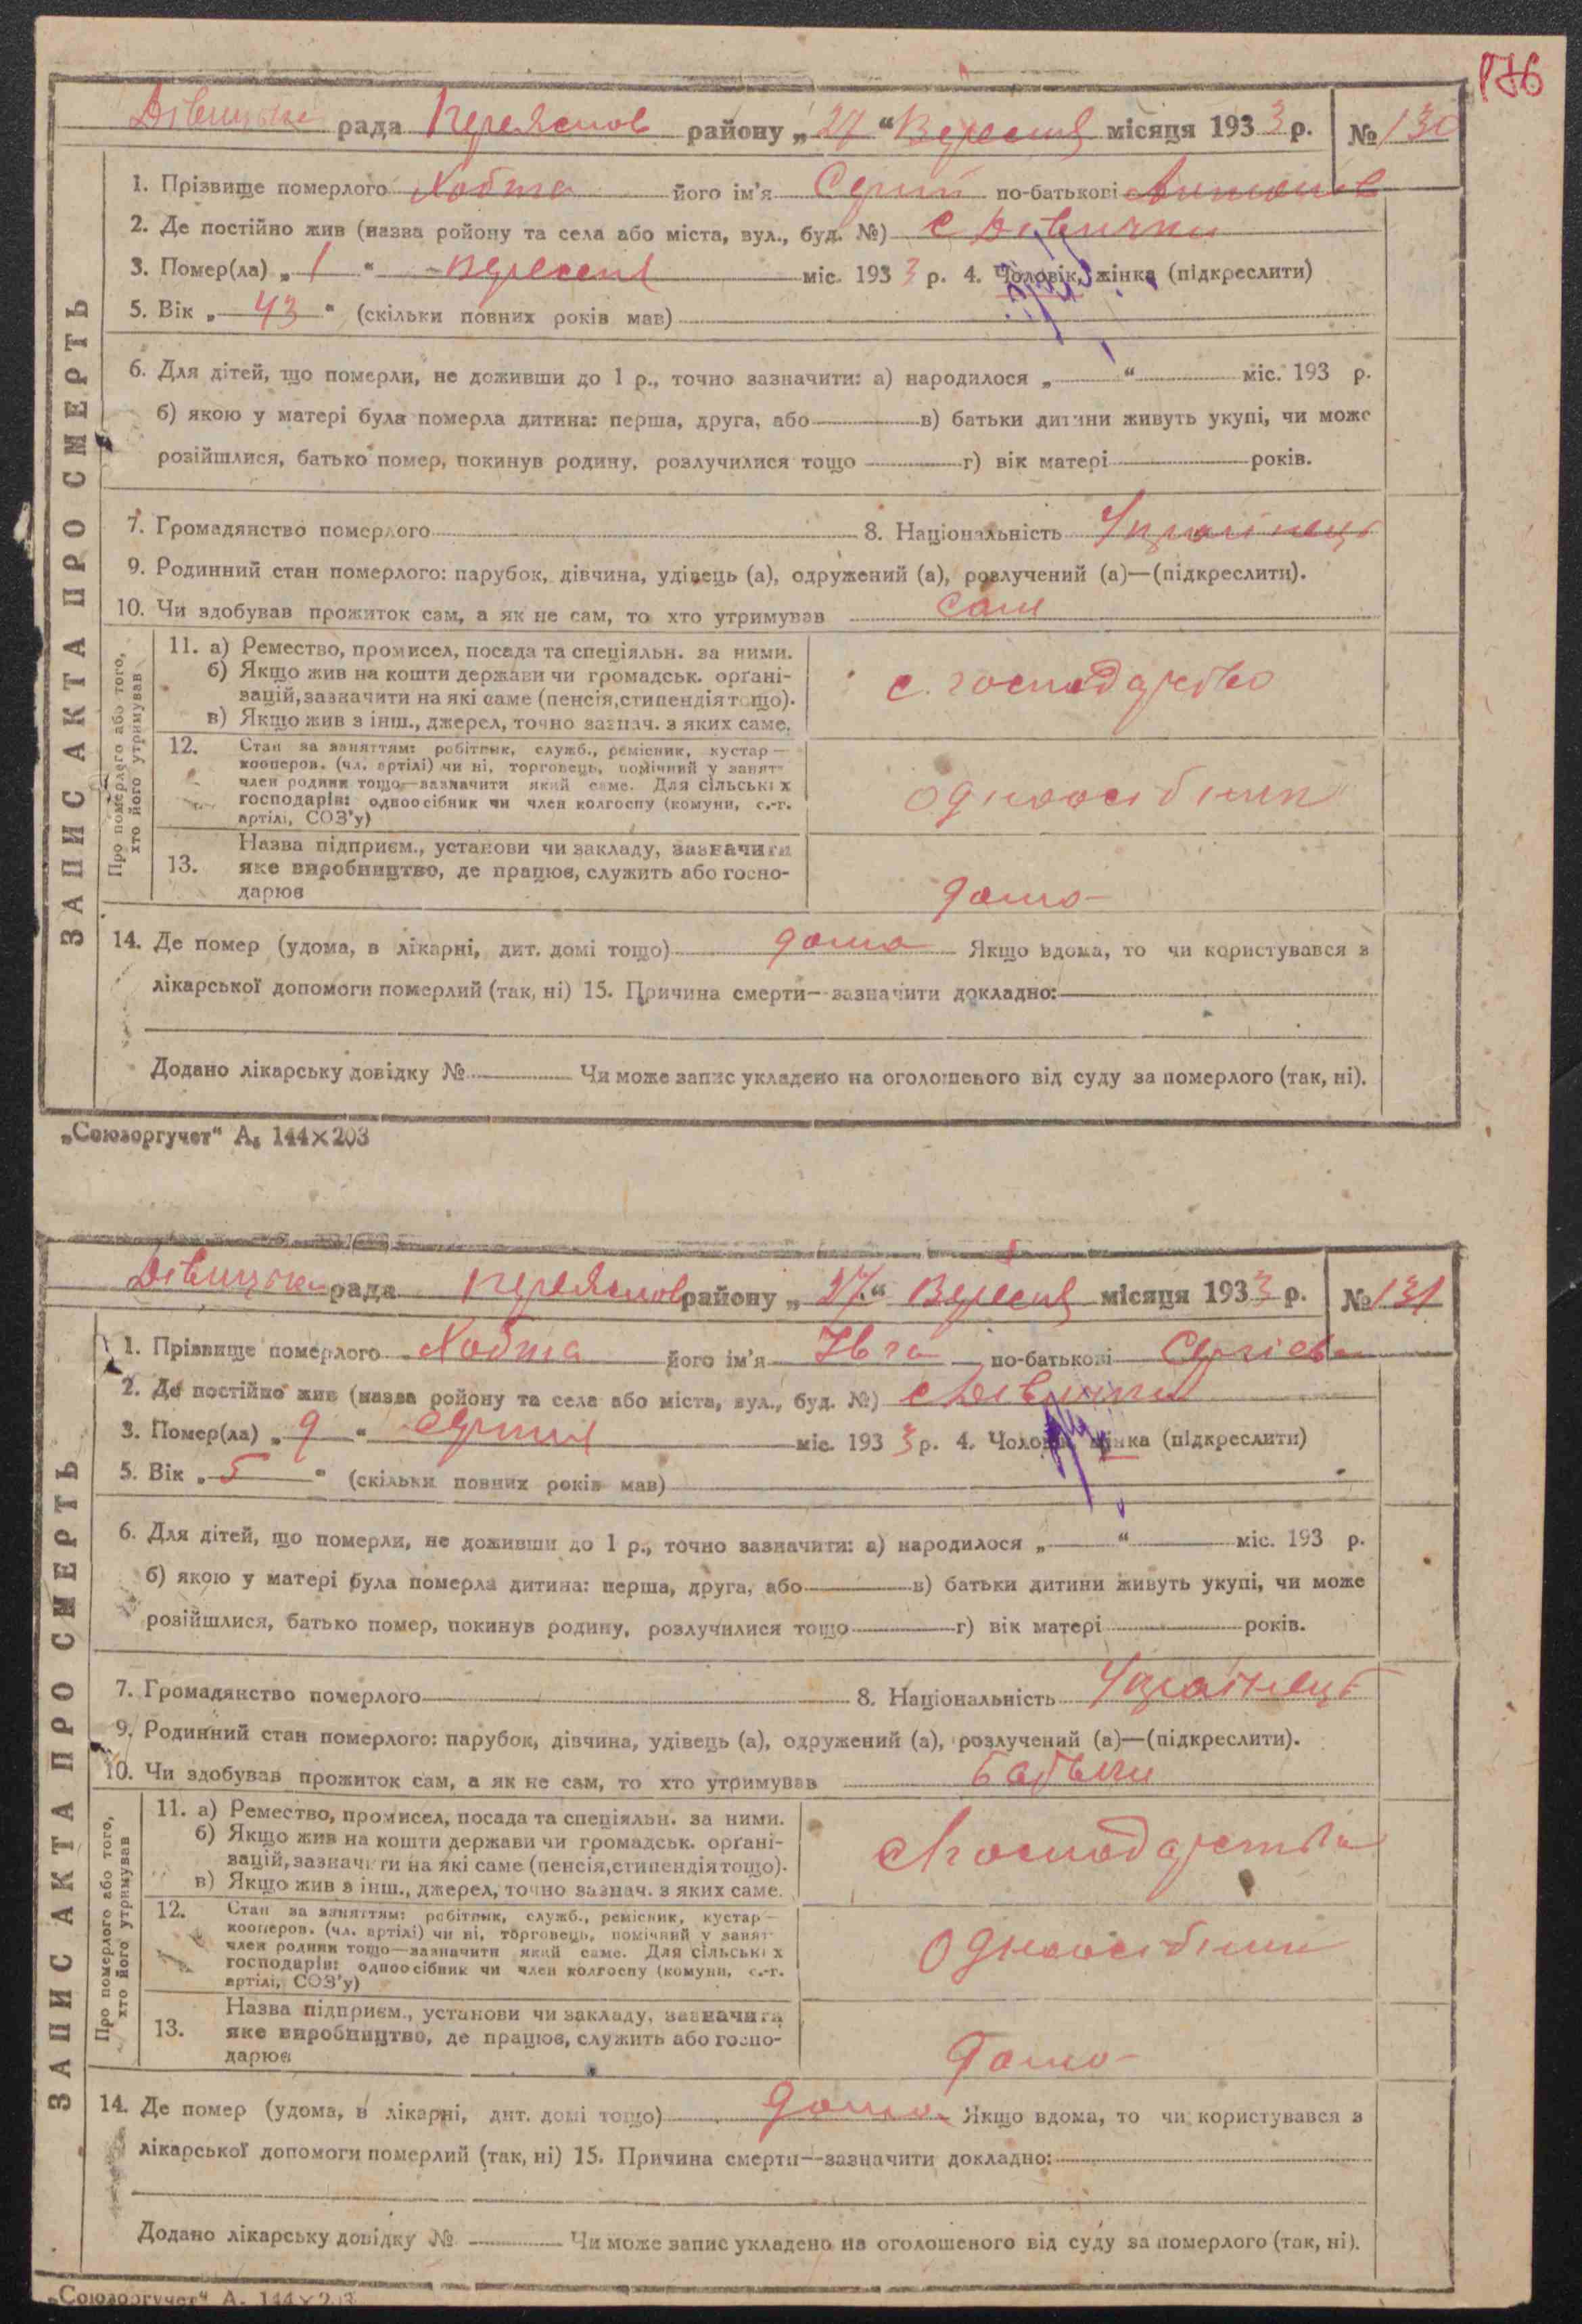 176
Дівицька рада Переяслов району „27“ Вересня місяця 1933 р. № 130
ЗАПИС АКТА ПРО СМЕРТЬ
1. Прізвище померлого Хобта його ім'я Сергій по-батькові Антонов
2. Де постійно жив (назва ройону та села або міста, вул., буд. №) с Дівички
3. Помер(ла) „1“ Вересня міс. 1933 р. 4. Чоловік, жінка (підкреслити)
5. Вік „43“ (скільки повних років мав)
6. Для дітей, що померли, не доживши до 1 р., точно зазначити: а) народилося „ “ міс. 193 р.
б) якою у матері була померла дитина: перша, друга, або в) батьки дитини живуть укупі, чи може
розійшлися, батько помер, покинув родину, розлучилися тощо г) вік матері років.
7. Громадянство померлого 8. Національність Українець
9. Родинний стан померлого: парубок, дівчина, удівець (а), одружений (а), розлучений (а)—(підкреслити).
10. Чи здобував прожиток сам, а як не сам, то хто утримував сам
Про померлого або того, хто його утримував
11. а) Ремество, промисел, посада та спеціяльн. за ними.
б) Якщо жив на кошти держави чи громадськ. орґані-
зацій, зазначити на які саме (пенсія, стипендія тощо).
в) Якщо жив з інш., джерел, точно зазнач. з яких саме.
с. господарство
12. Стан за заняттям: робітник, служб., ремісник, кустар—
кооперов. (чл. артілі) чи ні, торговець, помічний у занят-
член родини тощо—зазначити який саме. Для сільських
господарів: одноосібник чи член колгоспу (комуни, с.-г.
артілі, СОЗ'у)
одноосібник
13. Назва підприєм., установи чи закладу, зазначити
яке виробництво, де працює, служить або госпо-
дарює
дома
14. Де помер (удома, в лікарні, дит. домі тощо) дома Якщо вдома, то чи користувався з
лікарської допомоги померлий (так, ні) 15. Причина смерти—зазначити докладно:
Додано лікарську довідку № Чи може запис укладено на оголошеного від суду за померлого (так, ні).
„Союзоргучет“ А₅ 144×203
Дівицька рада Переяслов району „27“ Вересня місяця 1933 р. № 131
ЗАПИС АКТА ПРО СМЕРТЬ
1. Прізвище померлого Хобта його ім'я Ївга по-батькові Сергієва
2. Де постійно жив (назва ройону та села або міста, вул., буд. №) с Дівички
3. Помер(ла) „9“ Серпня міс. 1933 р. 4. Чоловік, жінка (підкреслити)
5. Вік „5“ (скільки повних років мав)
6. Для дітей, що померли, не доживши до 1 р., точно зазначити: а) народилося „ “ міс. 193 р.
б) якою у матері була померла дитина: перша, друга, або в) батьки дитини живуть укупі, чи може
розійшлися, батько помер, покинув родину, розлучилися тощо г) вік матері років.
7. Громадянство померлого 8. Національність Українець
9. Родинний стан померлого: парубок, дівчина, удівець (а), одружений (а), розлучений (а)—(підкреслити).
10. Чи здобував прожиток сам, а як не сам, то хто утримував батьки
Про померлого або того, хто його утримував
11. а) Ремество, промисел, посада та спеціяльн. за ними.
б) Якщо жив на кошти держави чи громадськ. орґані-
зацій, зазначити на які саме (пенсія, стипендія тощо).
в) Якщо жив з інш., джерел, точно зазнач. з яких саме.
12. Стан за заняттям: робітник, служб., ремісник, кустар—
кооперов. (чл. артілі) чи ні, торговець, помічний у занят-
член родини тощо—зазначити який саме. Для сільських
господарів: одноосібник чи член колгоспу (комуни, с.-г.
артілі, СОЗ'у)
одноосібник
13. Назва підприєм., установи чи закладу, зазначити
яке виробництво, де працює, служить або госпо-
дарює
дома
14. Де помер (удома, в лікарні, дит. домі тощо) дома Якщо вдома, то чи користувався з
лікарської допомоги померлий (так, ні) 15. Причина смерти—зазначити докладно:
Додано лікарську довідку № Чи може запис укладено на оголошеного від суду за померлого (так, ні).
„Союзоргучет“ А₅ 144×203